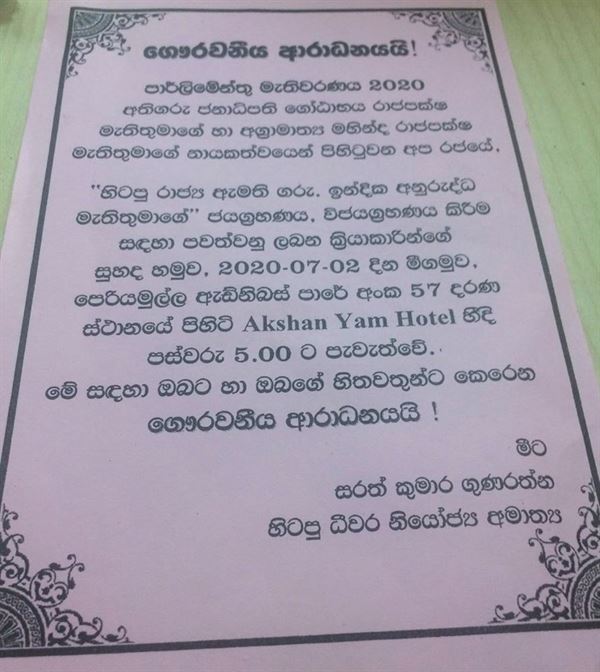 ගෞරවනීය ආරාධනයයි!
පාර්ලිමේන්තු මැතිවරණය 2020
අතිගරු ජනාධිපති ගෝඨාභය රාජපක්ෂ
මැතිතුමාගේ හා අග්‍රාමාත්‍ය මහින්ද රාජපක්ෂ
මැතිතුමාගේ නායකත්වයෙන් පිහිටුවන අප රජයේ,
"හිටපු රාජ්‍ය ඇමති ගරු. ඉන්දික අනුරුද්ධ
මැතිතුමාගේ" ජයග්‍රහණය, විජයග්‍රහණය කිරීම
සඳහා පවත්වනු ලබන ක්‍රියාකාරීන්ගේ
සුහද හමුව, 2020-07-02 දින මීගමුව,
පෙරියමුල්ල ඇඩ්නිබස් පාරේ අංක 57 දරණ
ස්ථානයේ පිහිටි Akshan Yam Hotel හීදි
පස්වරු 5.00 ට පැවැත්වේ.
මේ සඳහා ඔබට හා ඔබගේ හිතවතුන්ට කෙරෙන
ගෞරවනීය ආරාධනයයි !
මීට
සරත් කුමාර ගුණරත්න
හිටපු ධීවර නියෝජ්‍ය අමාත්‍ය